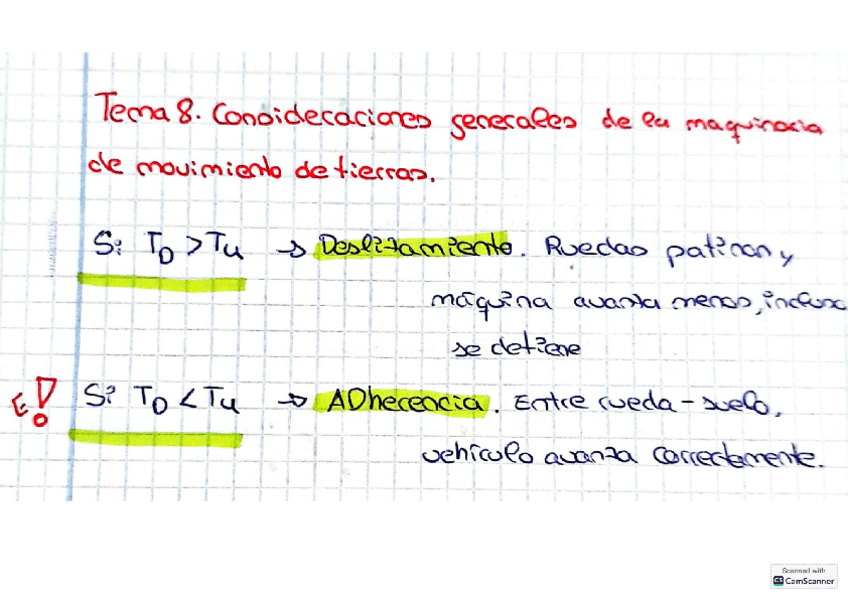 Tema 8. Consideraciones generales de la maquinaria
de movimiento de tierras.
Si T_D > Tu → Deslizamiento. Ruedas patinan y
máquina avanza menos, incluso
se detiene
E! Si T_D < Tu → Adherencia. Entre rueda - suelo,
vehículo avanza correctamente.
Scanned with
CS CamScanner